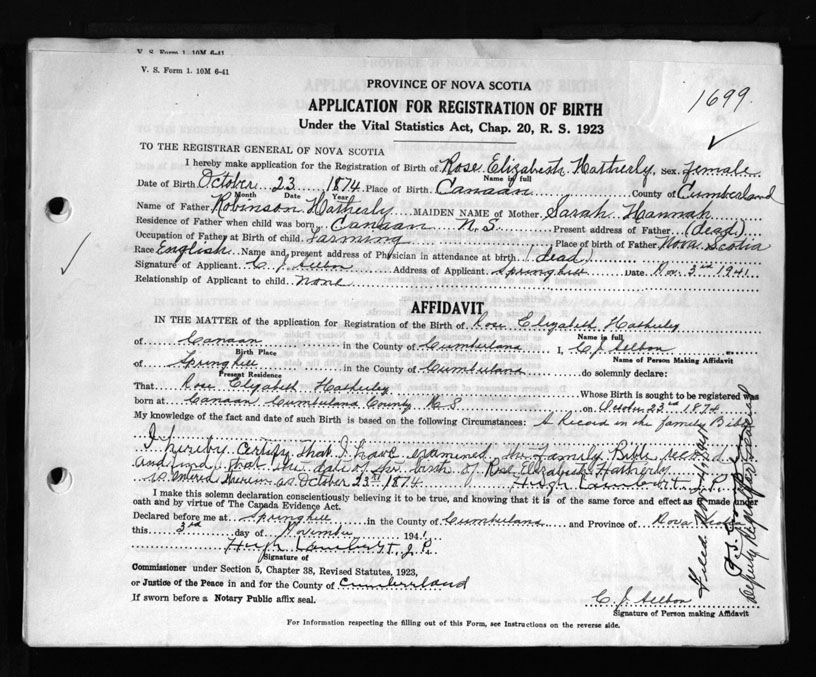 V. S. Form 1. 10M 6-41
V. S. Form 1. 10M 6-41
PROVINCE OF NOVA SCOTIA
1699
APPLICATION FOR REGISTRATION OF BIRTH
Under the Vital Statistics Act, Chap. 20, R. S. 1923
TO THE REGISTRAR GENERAL OF NOVA SCOTIA
I hereby make application for the Registration of Birth of Rose Elizabeth Hatherly, Sex female
Name in full
Date of Birth October 23 1874 Place of Birth Canaan County of Cumberland
Month Date Year
Name of Father Robinson Hatherly MAIDEN NAME of Mother Sarah Hannah
Residence of Father when child was born Canaan N.S. Present address of Father (dead)
Occupation of Father at Birth of child farming Place of birth of Father Nova Scotia
Race English Name and present address of Physician in attendance at birth (dead)
Signature of Applicant C. J. Address of Applicant Springhill Date Nov. 3rd 1941
Relationship of Applicant to child none
AFFIDAVIT
IN THE MATTER of the application for Registration of the Birth of Rose Elizabeth Hatherley
Name in full
of Canaan in the County of Cumberland I, C. J.
Birth Place Name of Person Making Affidavit
of Springhill in the County of Cumberland do solemnly declare:
Present Residence
That Rose Elizabeth Hatherley Whose Birth is sought to be registered was
born at Canaan Cumberland County N.S. on October 23rd 1874
My knowledge of the fact and date of such Birth is based on the following Circumstances: A Record in the family Bible
I hereby certify that I have examined the Family Bible record
and find that the date of the birth of Rose Elizabeth Hatherly
is entered therein as October 23rd 1874. Hugh J.P.
I make this solemn declaration conscientiously believing it to be true, and knowing that it is of the same force and effect as if made under
oath and by virtue of The Canada Evidence Act.
Declared before me at Springhill in the County of Cumberland and Province of Nova Scotia
this 3rd day of November 1941
Hugh J.P.
Signature of
Commissioner under Section 5, Chapter 38, Revised Statutes, 1923,
or Justice of the Peace in and for the County of Cumberland
If sworn before a Notary Public affix seal.
C. J.
Signature of Person making Affidavit
For Information respecting the filling out of this Form, see Instructions on the reverse side.
Filed Nov
Deputy Registrar General